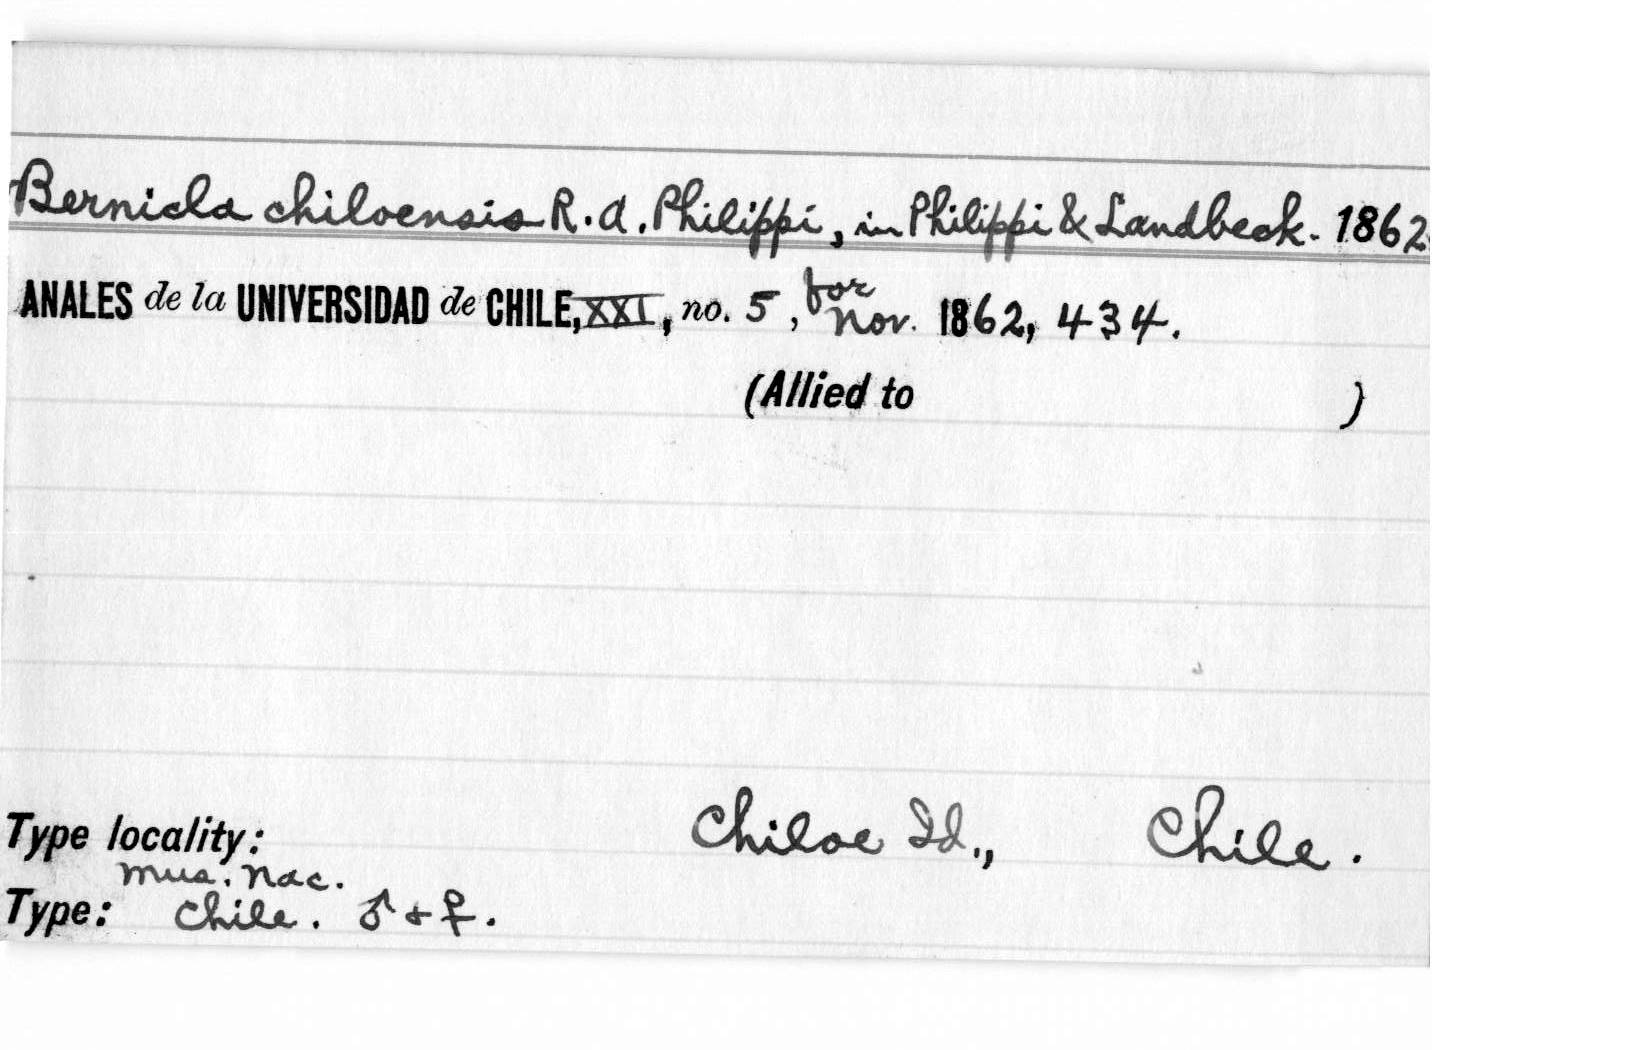 Bernicla chiloensis R.A. Philippi, in Philippi & Landbeck. 1862.
ANALES de la UNIVERSIDAD de CHILE, XXI, no. 5, for Nov. 1862, 434.
(Allied to )
Type locality: Chiloe Id., Chile.
Mus. Nac.
Type: Chile. ♂ + ♀.